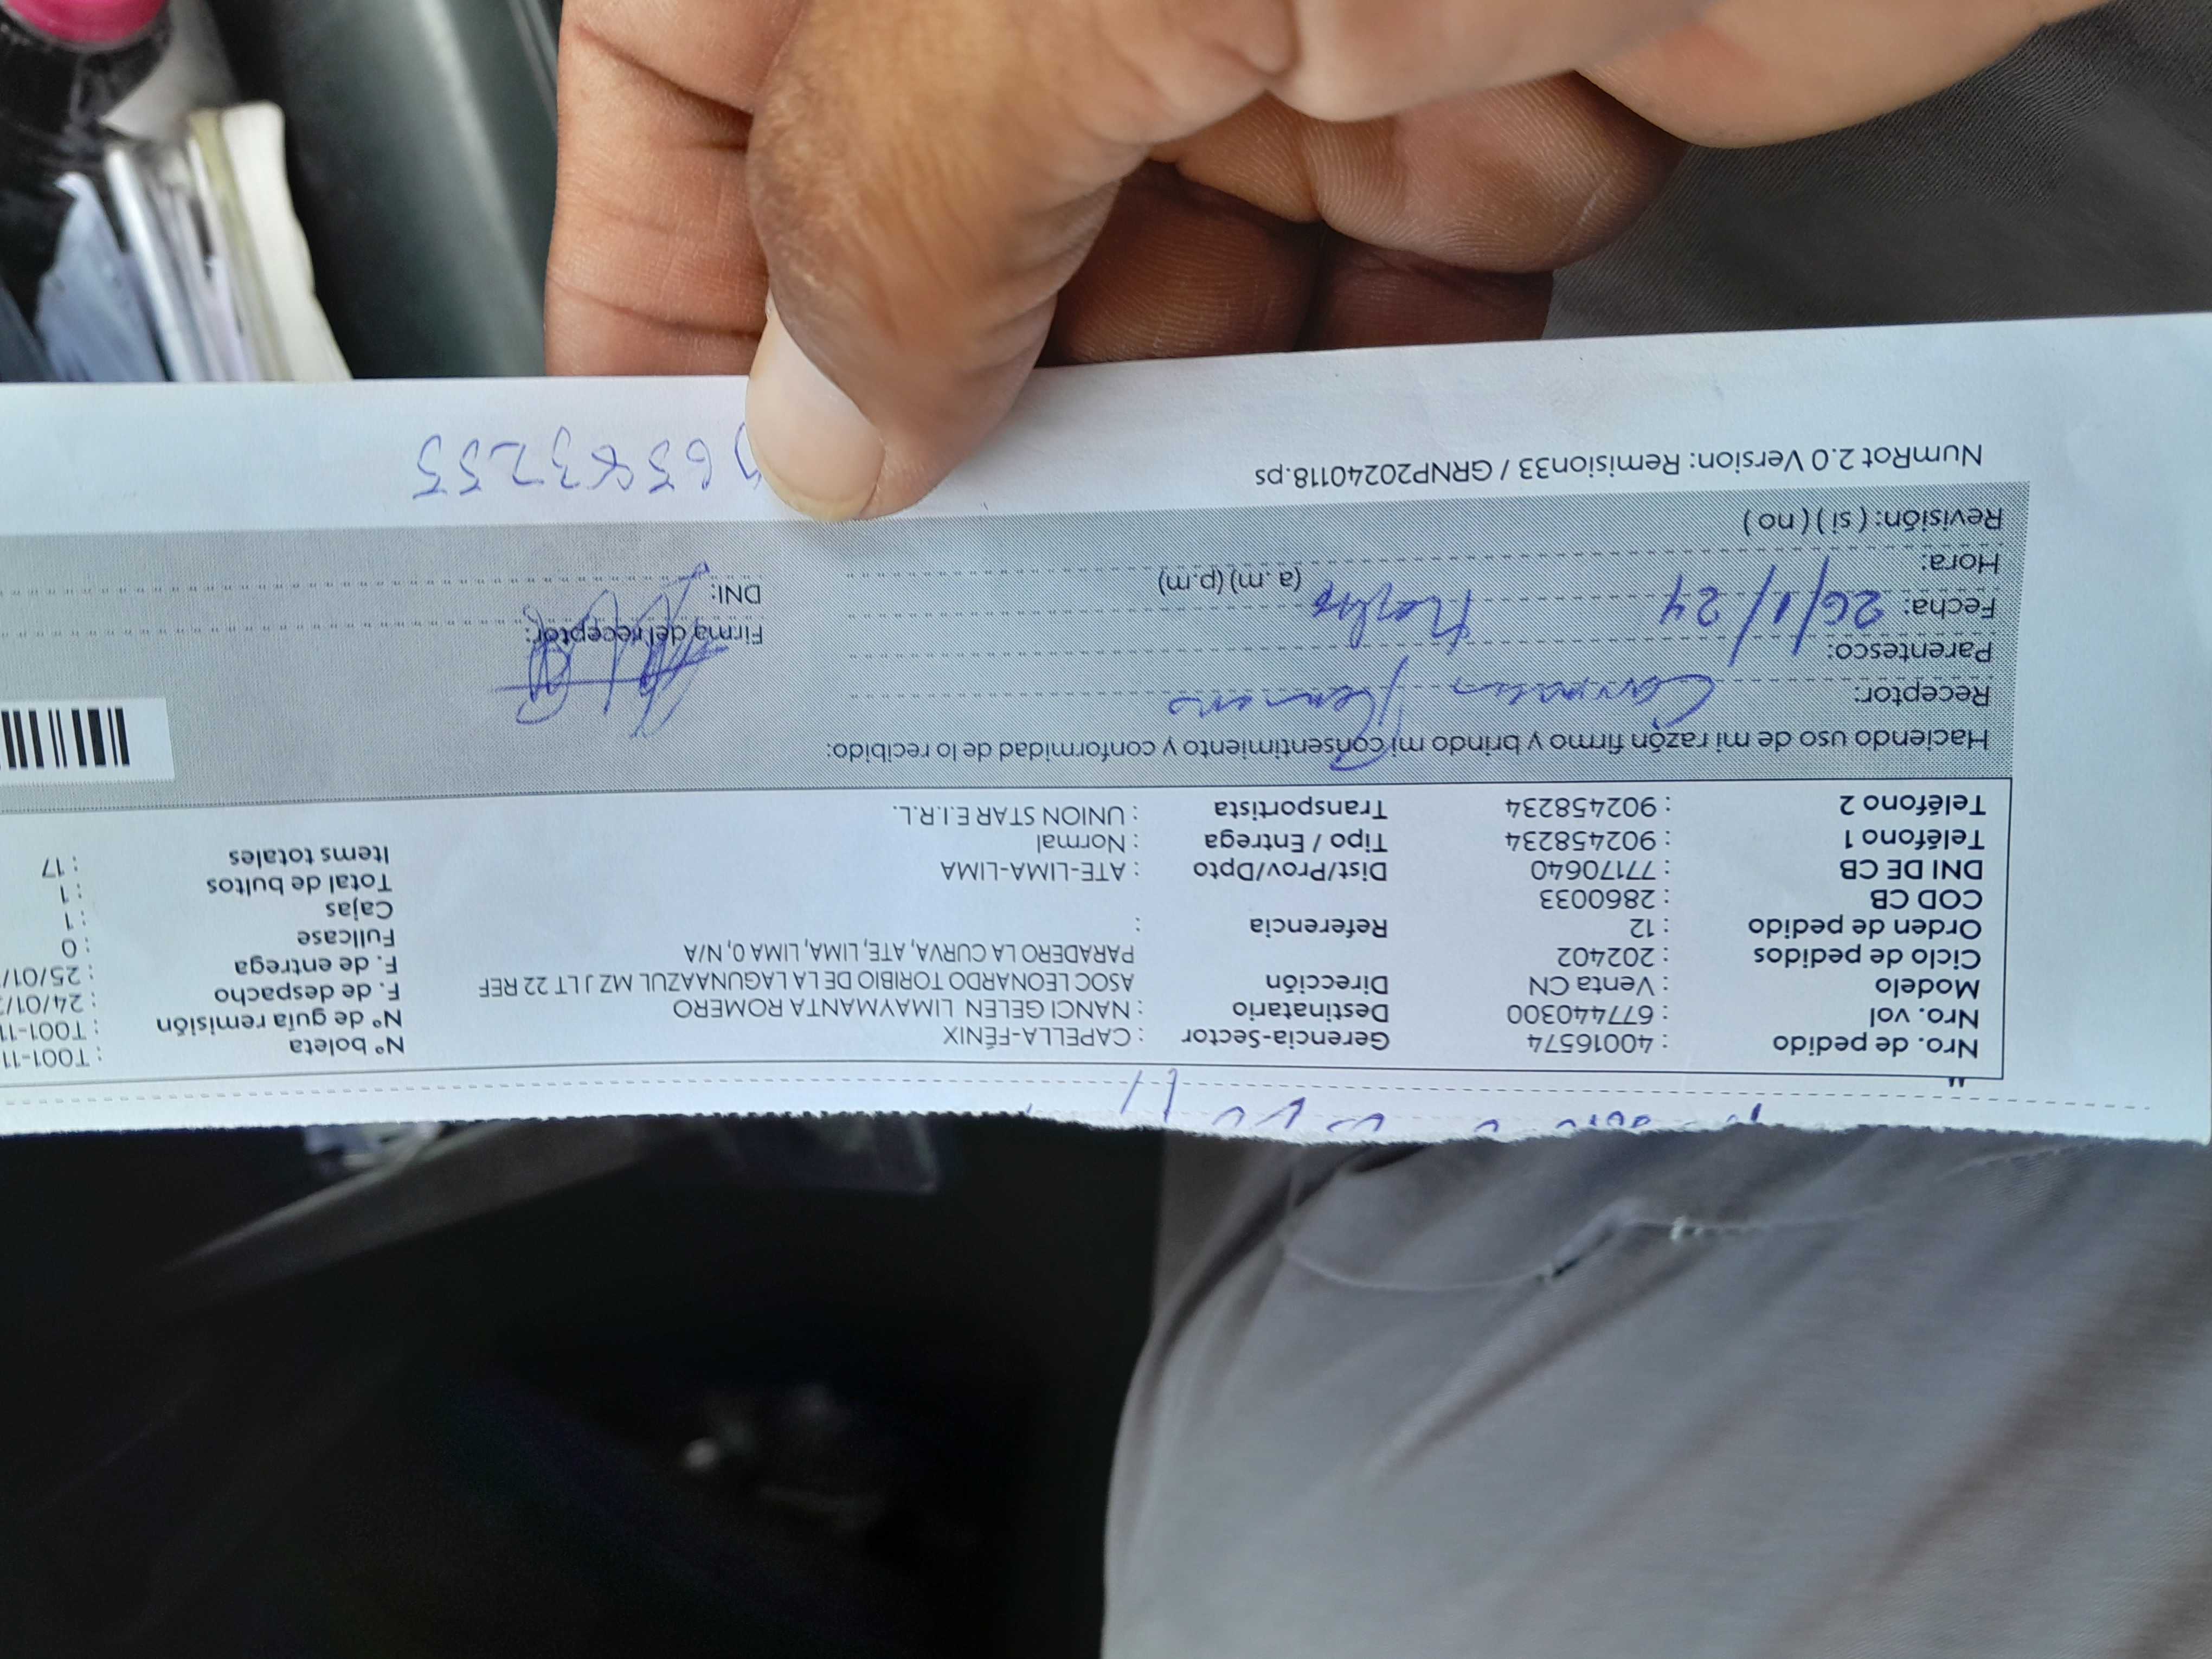 Nro. de pedido : 40016574 Gerencia-Sector : CAPELLA-FÉNIX Nº boleta : T001-11
Nro. vol : 677440300 Destinatario : NANCI GELEN LIMAYMANTA ROMERO Nº de guía remisión : T001-11
Modelo : Venta CN Dirección ASOC LEONARDO TORIBIO DE LA LAGUNAAZUL MZ J LT 22 REF F. de despacho : 24/01/
Ciclo de pedidos : 202402 PARADERO LA CURVA, ATE, LIMA, LIMA 0, N/A F. de entrega : 25/01/
Orden de pedido : 12 Referencia : Fullcase : 0
COD CB : 2860033 Cajas : 1
DNI DE CB : 77170640 Dist/Prov/Dpto : ATE-LIMA-LIMA Total de bultos : 1
Teléfono 1 : 902458234 Tipo / Entrega : Normal Items totales : 17
Teléfono 2 : 902458234 Transportista : UNION STAR E.I.R.L.
Haciendo uso de mi razón firmo y brindo mi consentimiento y conformidad de lo recibido:
Receptor:
Parentesco: Firma del receptor:
Fecha: 26/1/24
Hora: (a.m) (p.m) DNI:
Revisión: (si) (no)
NumRot 2.0 Version: Remision33 / GRNP20240118.ps 6583255